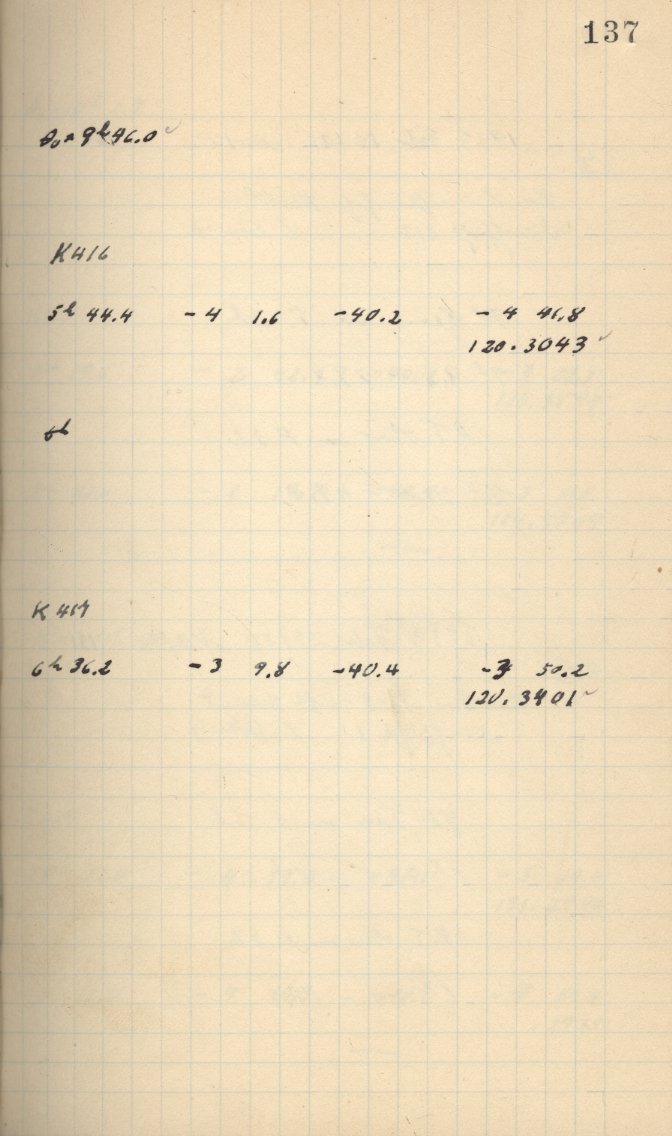 137
θ₀ = 9ʰ46.0 ✓
K 416
5ʰ 44.4 - 4 1.6 -40.2 - 4 41.8
120.3043 ✓
6ʰ
K 417
6ʰ 36.2 - 3 9.8 -40.4 -3 50.2
120.3401 ✓